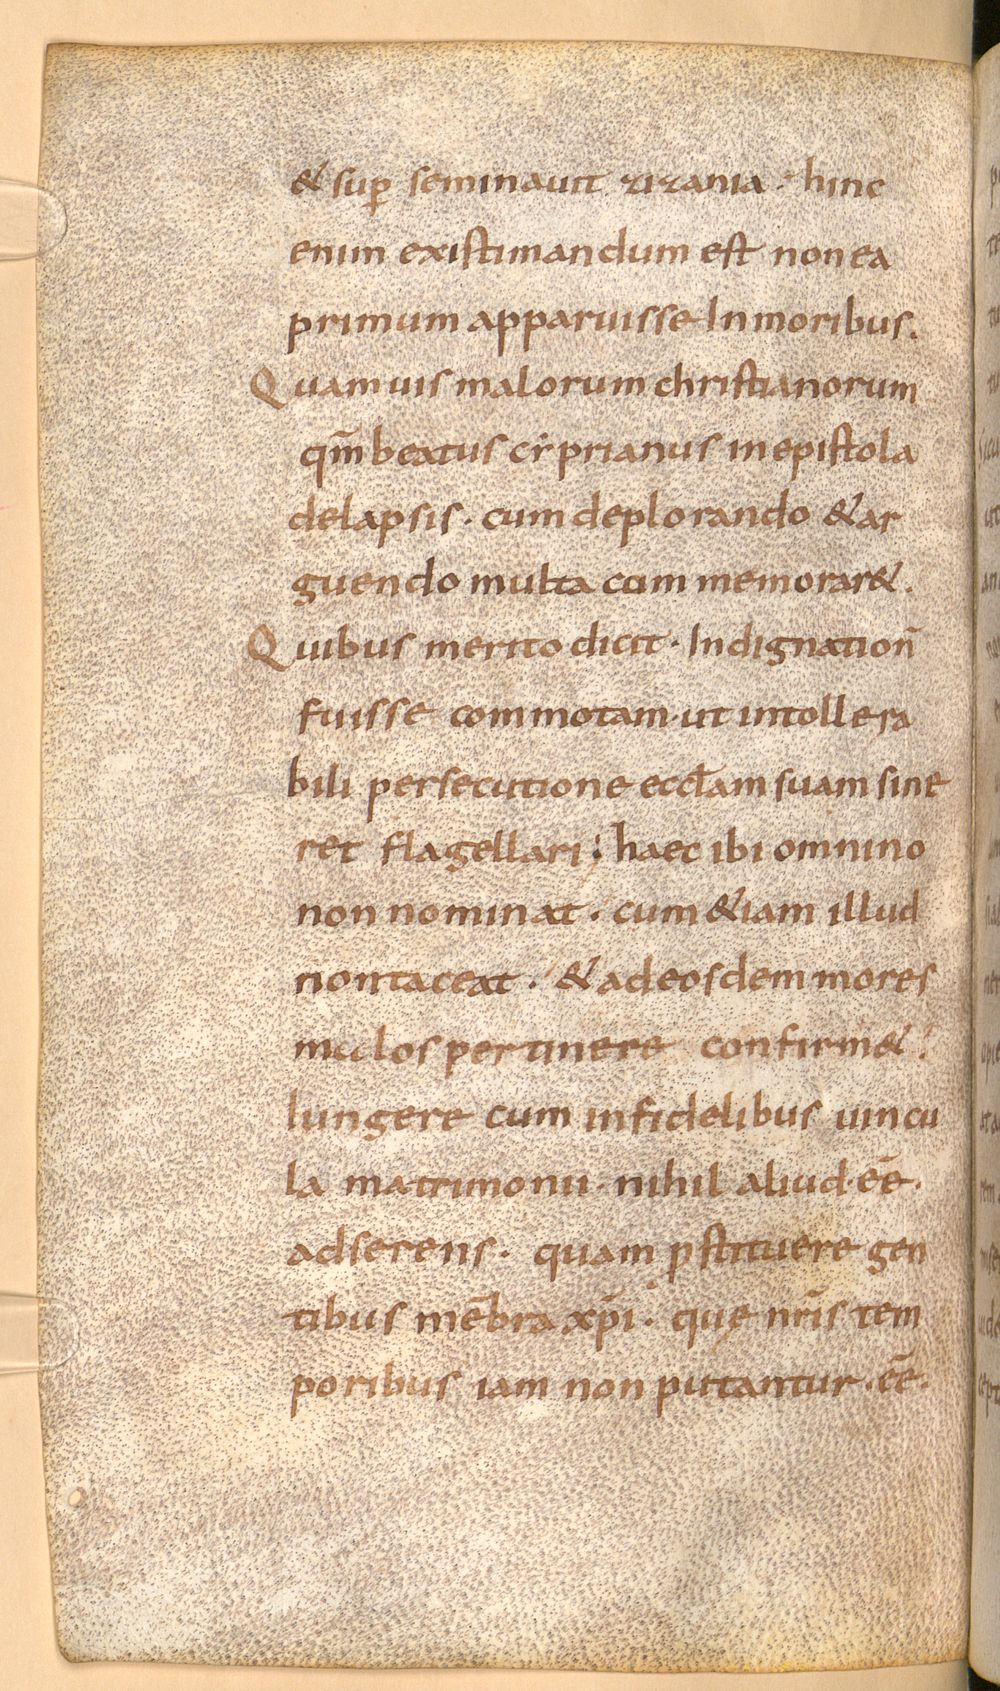 & sup̄ seminauit zizania · hinc
enim existimandum est non ea
primum apparuisse In moribus.
Quam uis malorum christianorum
qm̄ beatus cẏprianus in epistola
de lapsis · cum deplorando & ar
guendo multa cum memorar& .
Quibus merito dicit · Indignation̄
fuisse commotam · ut intollera
bili persecutione eccl̄am suam sine
ret flagellari : haec ibi omnino
non nominat · cum &iam illud
non taceat · & ad eosdem mores
malos pertinere confirm& :
Iungere cum infidelibus uincu
la matrimonii · nihil aliud · ēē ·
adserens · quam ꝓstituere gen
tibus mēbra xp̄i · que nr̄is tem
poribus iam non putantur · ēē ·